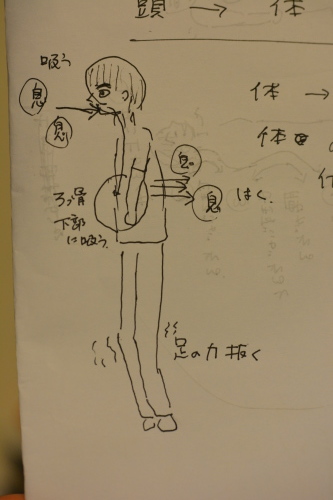 頭 → 体
吸う
息
息
体 →
体
息
息
はく.
ろっ骨
下部
に吸う
足の力抜く